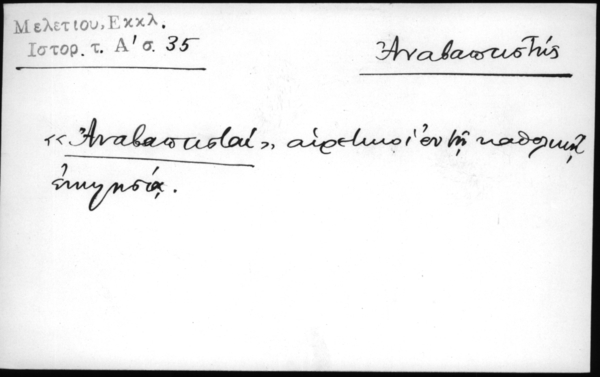 Μελετίου, Εκκλ.
Ιστορ. τ. Α' σ. 35
Ἀναβαπτιστής
«Ἀναβαπτισταί», αἱρετικοὶ ἐν τῇ καθολικῇ
ἐκκλησίᾳ.